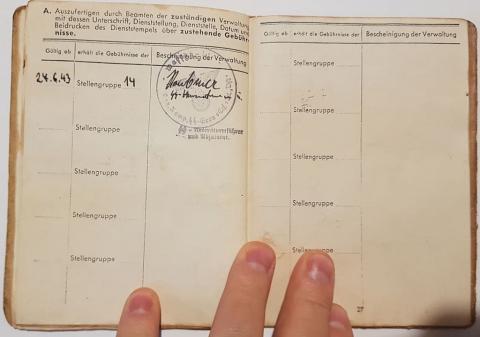 A. Auszufertigen durch Beamten der zuständigen Verwaltu
mit dessen Unterschrift, Dienststellung, Dienststelle, Datum un
Beidrucken des Dienststempels über zustehende Gebühr
nisse.
Gültig ab erhält die Gebührnisse der Bescheinigung der Verwaltung
24.6.43 Stellengruppe 14
Stellengruppe
Stellengruppe
Stellengruppe
Stellengruppe
und Adjutant.
Gültig ab erhält die Gebührnisse der Bescheinigung der Verwaltung
Stellengruppe
Stellengruppe
Stellengruppe
Stellengruppe
Stellengruppe
27